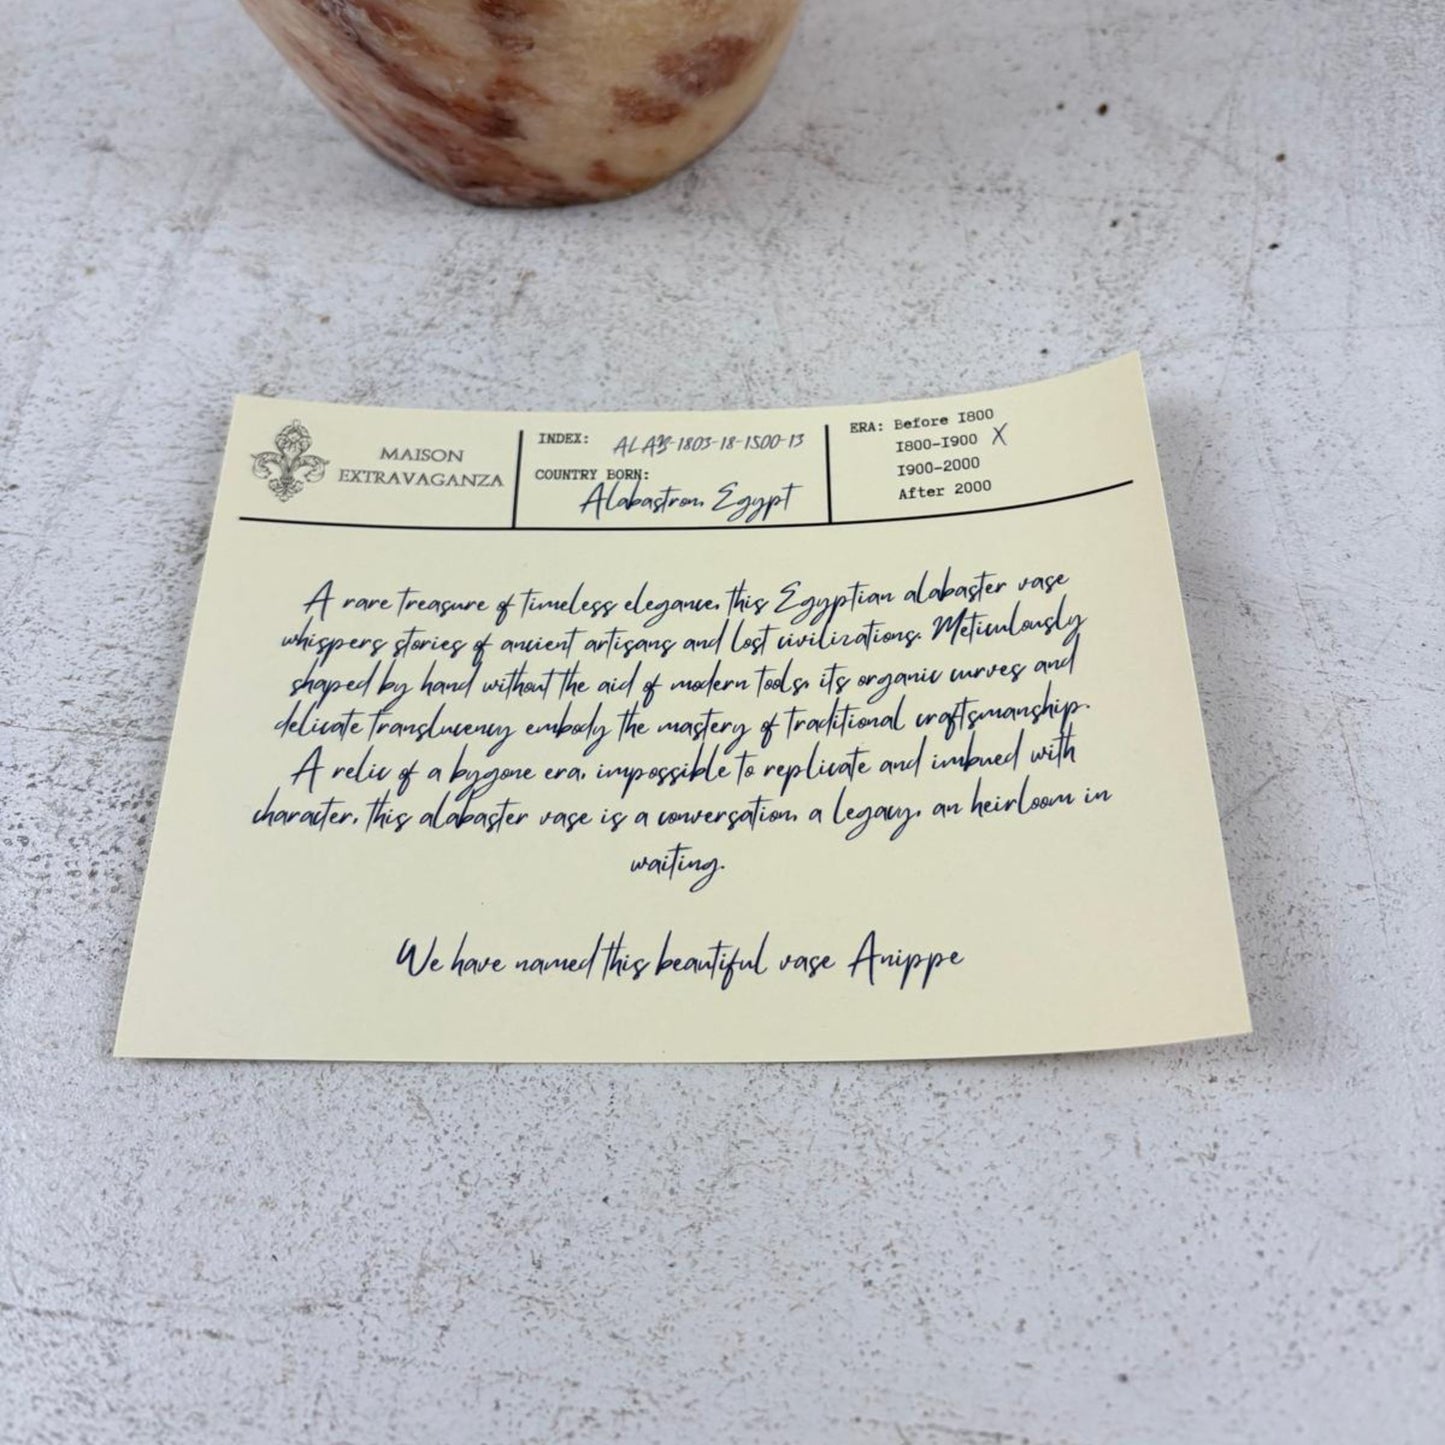 MAISON
EXTRAVAGANZA
INDEX: ALAB-1803-18-1500-13
COUNTRY BORN:
Alabastron, Egypt
ERA: Before 1800
1800-1900 X
1900-2000
After 2000
A rare treasure of timeless elegance, this Egyptian alabaster vase
whispers stories of ancient artisans and lost civilizations. Meticulously
shaped by hand without the aid of modern tools, its organic curves and
delicate translucency embody the mastery of traditional craftsmanship.
A relic of a bygone era, impossible to replicate and imbued with
character, this alabaster vase is a conversation, a legacy, an heirloom in
waiting.
We have named this beautiful vase Anippe